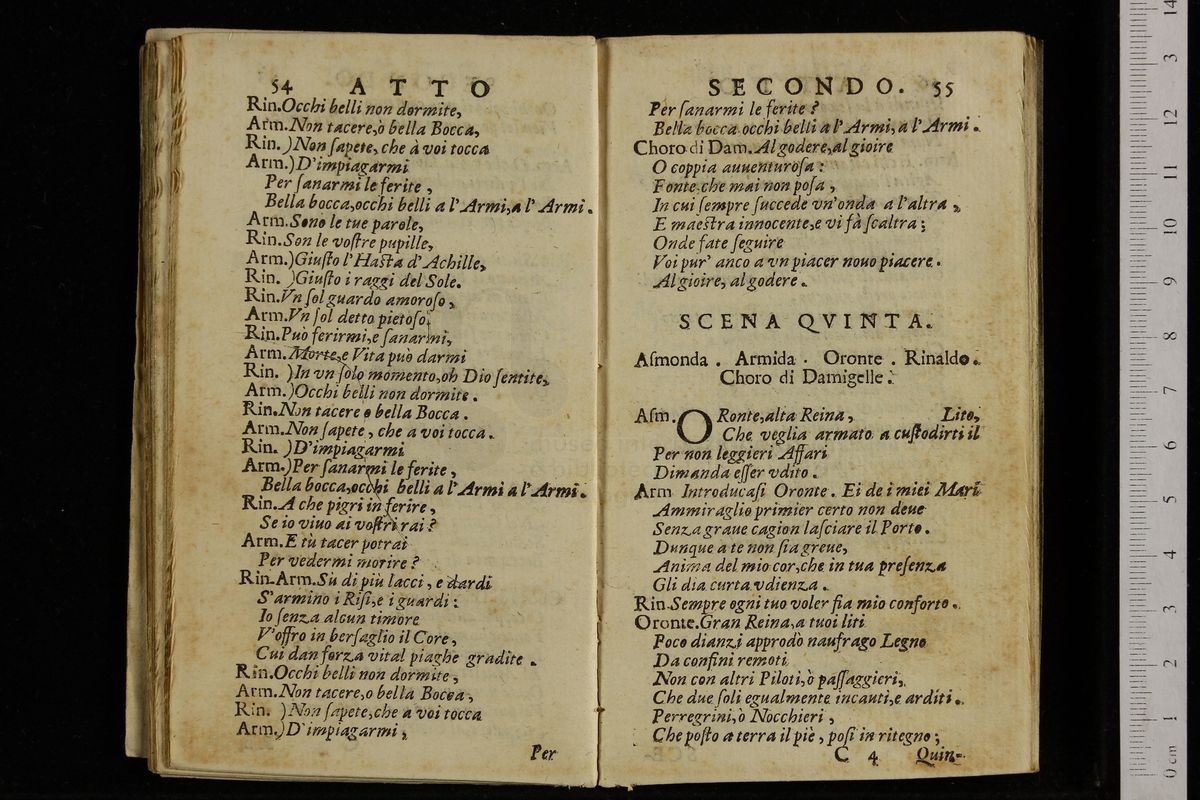 54 ATTO
Rin.Occhi belli non dormite,
Arm.Non tacere,ò bella Bocca,
Rin. )Non ſapete, che à voi tocca
Arm.)D'impiagarmi
Per ſanarmi le ferite ,
Bella bocca,occhi belli a l'Armi,a l' Armi.
Arm.Sono le tue parole,
Rin.Son le voſtre pupille,
Arm.)Giuſto l'Haſta d'Achille,
Rin. )Giuſto i raggi del Sole.
Rin.Vn ſol guardo amoroſo,
Arm.Vn ſol detto pietoſo,
Rin.Può ferirmi,e ſanarmi,
Arm.Morte,e Vita può darmi
Rin. )In vn ſolo momento,oh Dio ſentite,
Arm.)Occhi belli non dormite.
Rin.Non tacere o bella Bocca.
Arm.Non ſapete, che a voi tocca.
Rin. )D'impiagarmi
Arm.)Per ſanarmi le ferite ,
Bella bocca,occhi belli a l'Armi a l'Armi.
Rin.A che pigri in ferire,
Se io viuo ai voſtri rai?
Arm.E tù tacer potrai
Per vedermi morire?
Rin.Arm.Sù di più lacci, e dardi
S'armino i Riſi,e i guardi:
Io ſenza alcun timore
V'offro in berſaglio il Core,
Cui dan forza vital piaghe gradite.
Rin.Occhi belli non dormite,
Arm.Non tacere,o bella Bocca,
Rin. )Non ſapete,che a voi tocca
Arm.)D'impiagarmi,
Per
SECONDO. 55
Per ſanarmi le ferite?
Bella bocca occhi belli a l'Armi, a l'Armi.
Choro di Dam.Al godere,al gioire
O coppia auuenturoſa:
Fonte,che mai non poſa,
In cui ſempre ſuccede vn'onda a l'altra,
E maeſtra innocente,e vi fà ſcaltra;
Onde fate ſeguire
Voi pur' anco a vn piacer nouo piacere.
Al gioire, al godere.
SCENA QVINTA.
Aſmonda . Armida . Oronte . Rinaldo.
Choro di Damigelle.
Aſm. ORonte,alta Reina, Lito,
Che veglia armato a cuſtodirti il
Per non leggieri Affari
Dimanda eſſer vdito.
Arm Introducaſi Oronte. Ei de i miei Mari
Ammiraglio primier certo non deue
Senza graue cagion laſciare il Porto.
Dunque a te non ſia greue,
Anima del mio cor,che in tua preſenza
Gli dia curta vdienza.
Rin.Sempre ogni tuo voler fia mio conforto.
Oronte.Gran Reina,a tuoi liti
Poco dianzi approdò naufrago Legno
Da confini remoti
Non con altri Piloti,ò paſſaggieri,
Che due ſoli egualmente incauti,e arditi.
Perregrini,ò Nocchieri,
Che poſto a terra il piè, poſi in ritegno;
C 4 Quin-